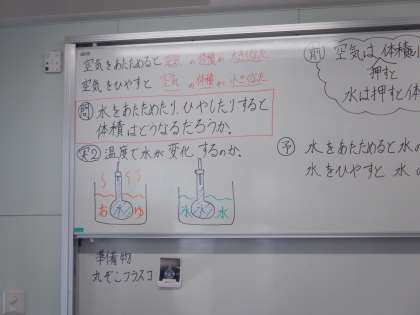 空気をあたためると 空気の体積が大きくなる
空気をひやすと 空気の体積が小さくなる
問 水をあたためたり、ひやしたりすると
体積はどうなるだろうか。
実2 温度で水が変化するのか。
お 水 ゆ
氷 水 水
準備物
丸ぞこフラスコ
前 空気は体積
押すと
水は押すと体
予 水をあたためると水の
水をひやすと 水の